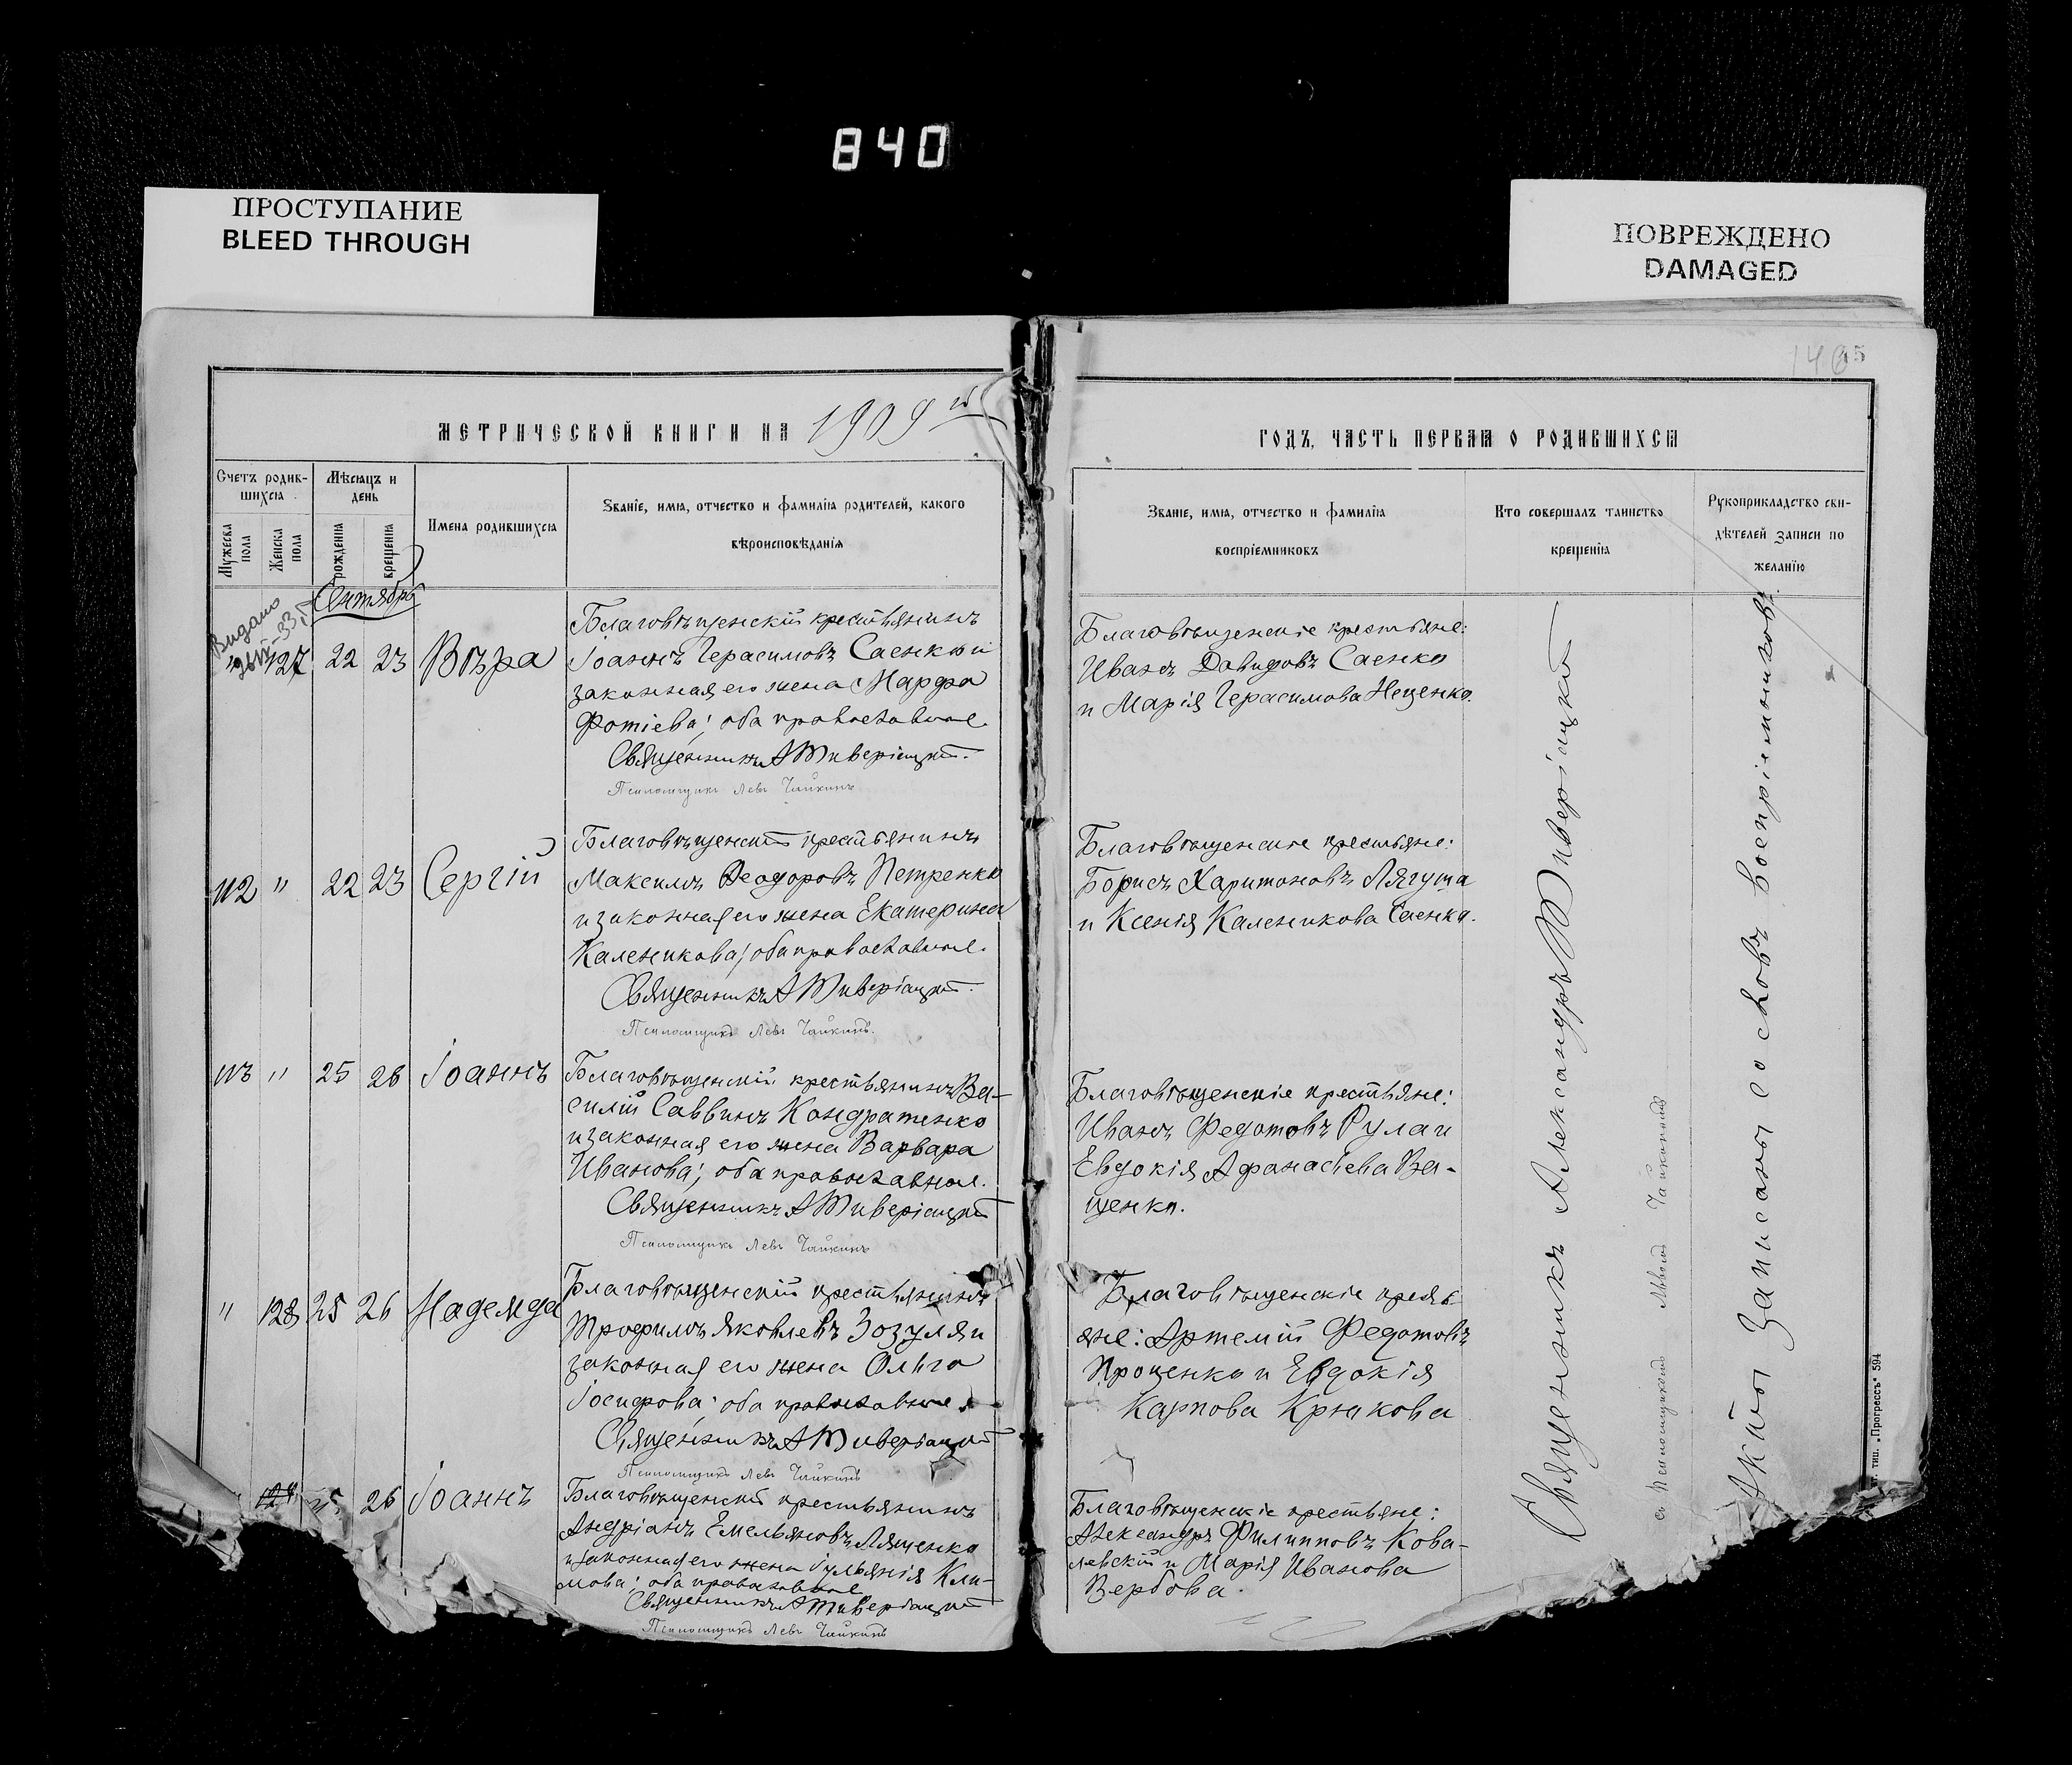 840
ПРОСТУПАНИЕ
BLEED THROUGH
ПОВРЕЖДЕНО
DAMAGED
МЕТРИЧЕСКОЙ КНИГИ НА 1909 й
Счетъ родив-
шихся
Мѣсяцъ и
день
Мужеска
пола
Женска
пола
рожденія
крещенія
Имена родившихся
Званіе, имя, отчество и фамилія родителей, какого
вѣроисповѣданія
Сентябрь
Видано
" 127 22 23 Вѣра
Благовѣщенскій крестьянинъ
Іоаннъ Герасимовъ Саенко и
законная его жена Марфа
Фотіева; оба православные.
Священникъ А Тиверіацкій.
Псаломщикъ Левъ Чайкинъ
112 " 22 23 Сергій
Благовѣщенскій крестьянинъ
Максимъ Ѳеодоровъ Петренко
и законная его жена Екатерина
Каленикова; оба православные.
Священникъ А Тиверіацкій.
Псаломщикъ Левъ Чайкинъ.
113 " 25 26 Іоаннъ
Благовѣщенскій крестьянинъ Ва-
силій Саввинъ Кондратенко
и законная его жена Варвара
Иванова; оба православные.
Священникъ А Тиверіацкій
Псаломщикъ Левъ Чайкинъ
" 128 25 26 Надежда
Благовѣщенскій крестьянинъ
Трофимъ Яковлевъ Зозуля и
законная его жена Ольга
Іосифова; оба православные
Священникъ А Тиверіацкій
Псаломщикъ Левъ Чайкинъ
26 Іоаннъ
Благовѣщенскій крестьянинъ
Андріанъ Емельяновъ Ляшенко
и законная его жена Іульянія Кли-
мова; оба православные
Священникъ А Тиверіацкій
Псаломщикъ Левъ Чайкинъ
ГОДЪ, ЧАСТЬ ПЕРВАЯ О РОДИВШИХСЯ
Званіе, имя, отчество и фамилія
воспріемниковъ
Кто совершалъ таинство
крещенія
Рукоприкладство сви-
дѣтелей записи по
желанію
Благовѣщенскіе крестьяне:
Иванъ Давидовъ Саенко
и Марія Герасимова Ищенко.
Благовѣщенскіе крестьяне:
Борисъ Харитоновъ Лягуша
и Ксенія Каленикова Саенко.
Благовѣщенскіе крестьяне:
Иванъ Федотовъ Рула и
Евдокія Афанасьева Ва-
щенко.
Благовѣщенскіе кресть-
яне: Артемій Федотовъ
Проценко и Евдокія
Карпова Крюкова
Благовѣщенскіе крестьяне:
Александръ Филипповъ Кова-
левскій и Марія Иванова
Вербова.
Священникъ Александръ Тиверіацкій
съ Псаломщикомъ Львомъ Чайкинымъ
Акты записаны со словъ воспріемниковъ.
тип. „Прогрессъ“ 594